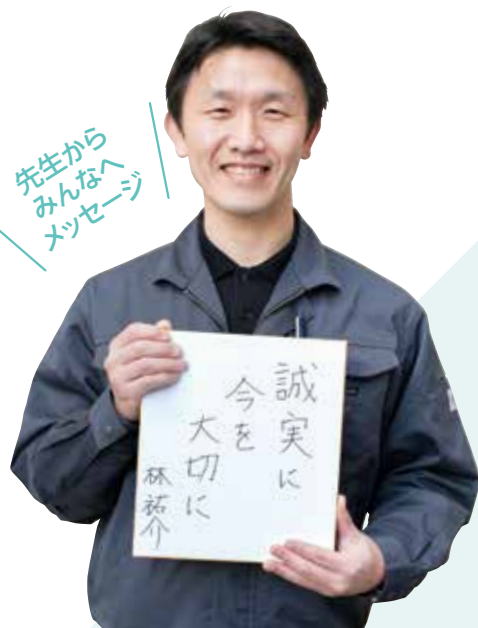 先生から
みんなへ
メッセージ
誠実に
今を
大切に
林祐介